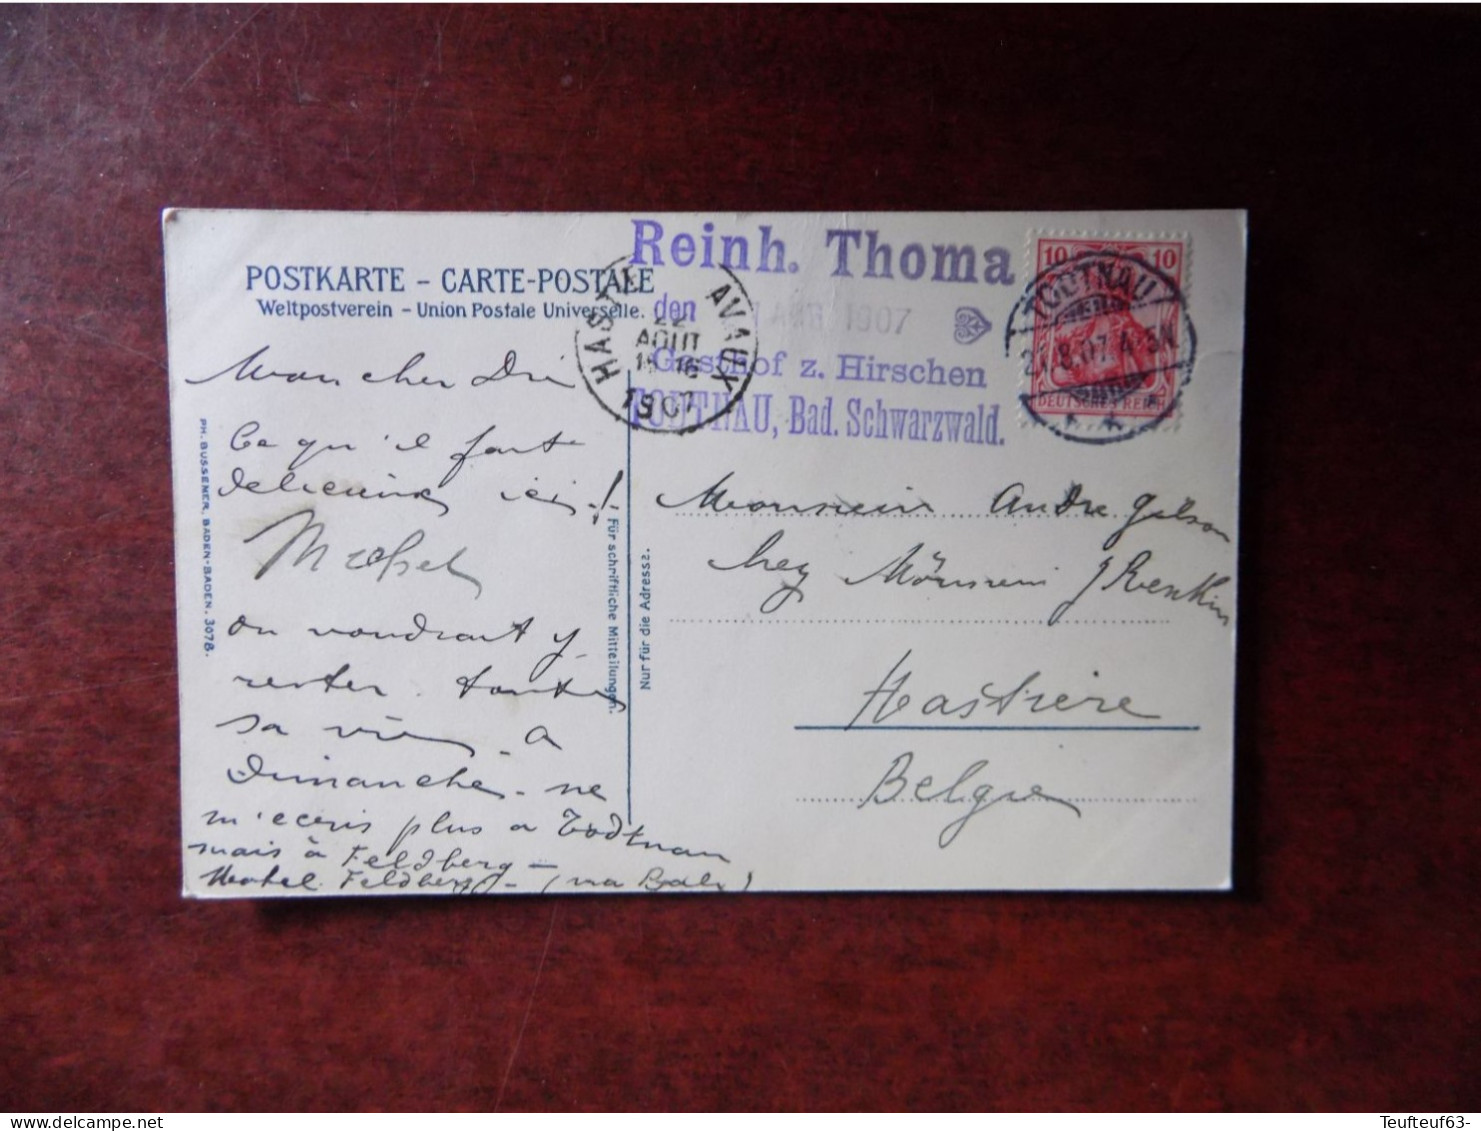 POSTKARTE – CARTE-POSTALE
Weltpostverein – Union Postale Universelle.
Reinh. Thoma
den 1907
Gasthof z. Hirschen
TODTNAU, Bad. Schwarzwald.
22
AOUT
1907
AVAUX
10 10
TODTNAU
21.8.07. 4-5N
DEUTSCHES REICH
PH. BUSSENER, BADEN-BADEN. 3078.
Für schriftliche Mitteilungen.
Nur für die Adresse.
Mon cher
Ce qu'il fait
delicieux ici!
on voudrait y
rester toute
sa vie – a
Dimanche – ne
m'ecris plus a Todtnau
mais à Feldberg –
Hotel Feldberg – (via Bale)
Monsieur Andre Gilson
chez Monsieur J Renkin
Hastière
Belgie
Teufteuf63-